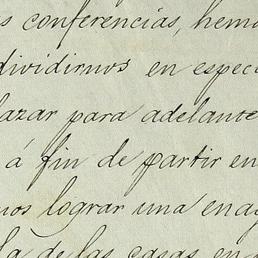 s conferencias, hem
dividirnos en espec
lazar para adelante
á fin de partir en
nos lograr una ena
la de las casas en